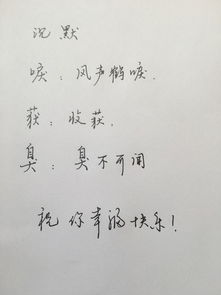 沉默
唳：风声鹤唳.
获：收获.
臭：臭不可闻
祝你幸福快乐！